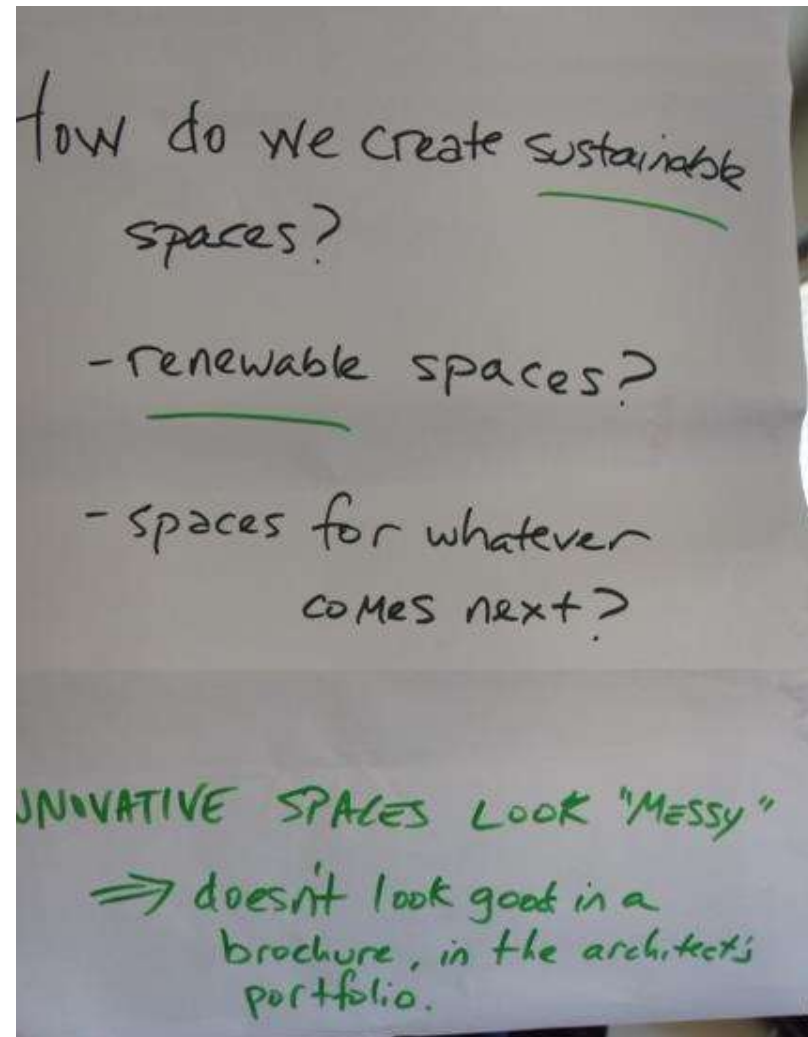 How do we create sustainable
spaces?
- renewable spaces?
- spaces for whatever
comes next?
INOVATIVE SPACES LOOK "MESSY"
⇒ doesn't look good in a
brochure, in the architect's
portfolio.